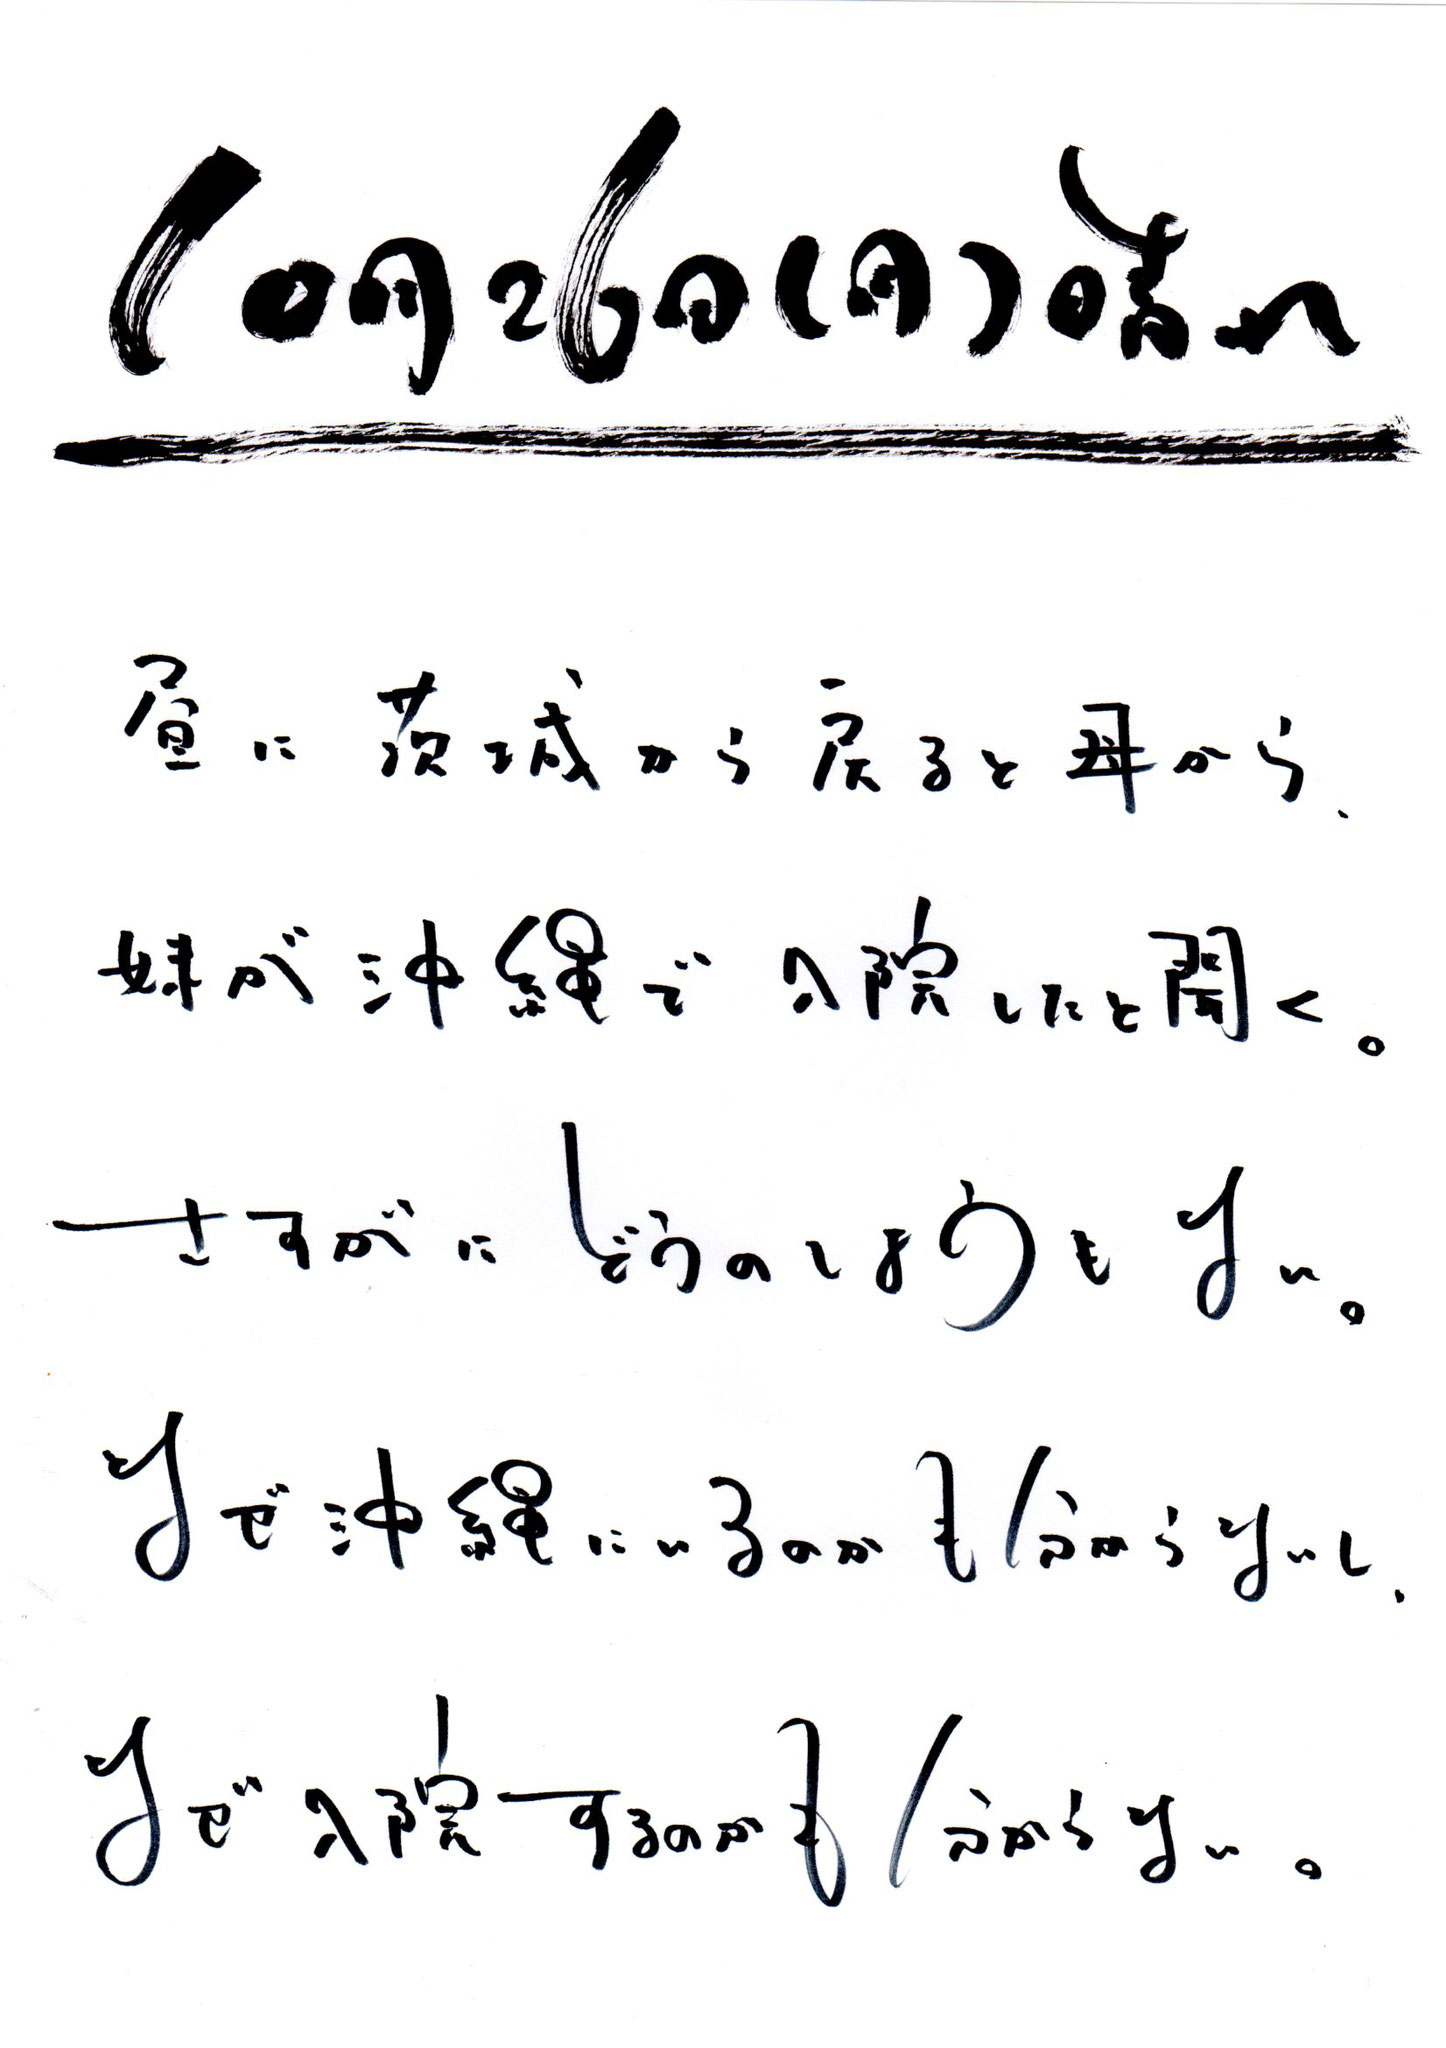 10月26日(月)晴れ
昼に茨城から戻ると母から、
妹が沖縄で入院したと聞く。
さすがにどうのしようもない。
なぜ沖縄にいるのかも分からないし、
なぜ入院するのかも分からない。